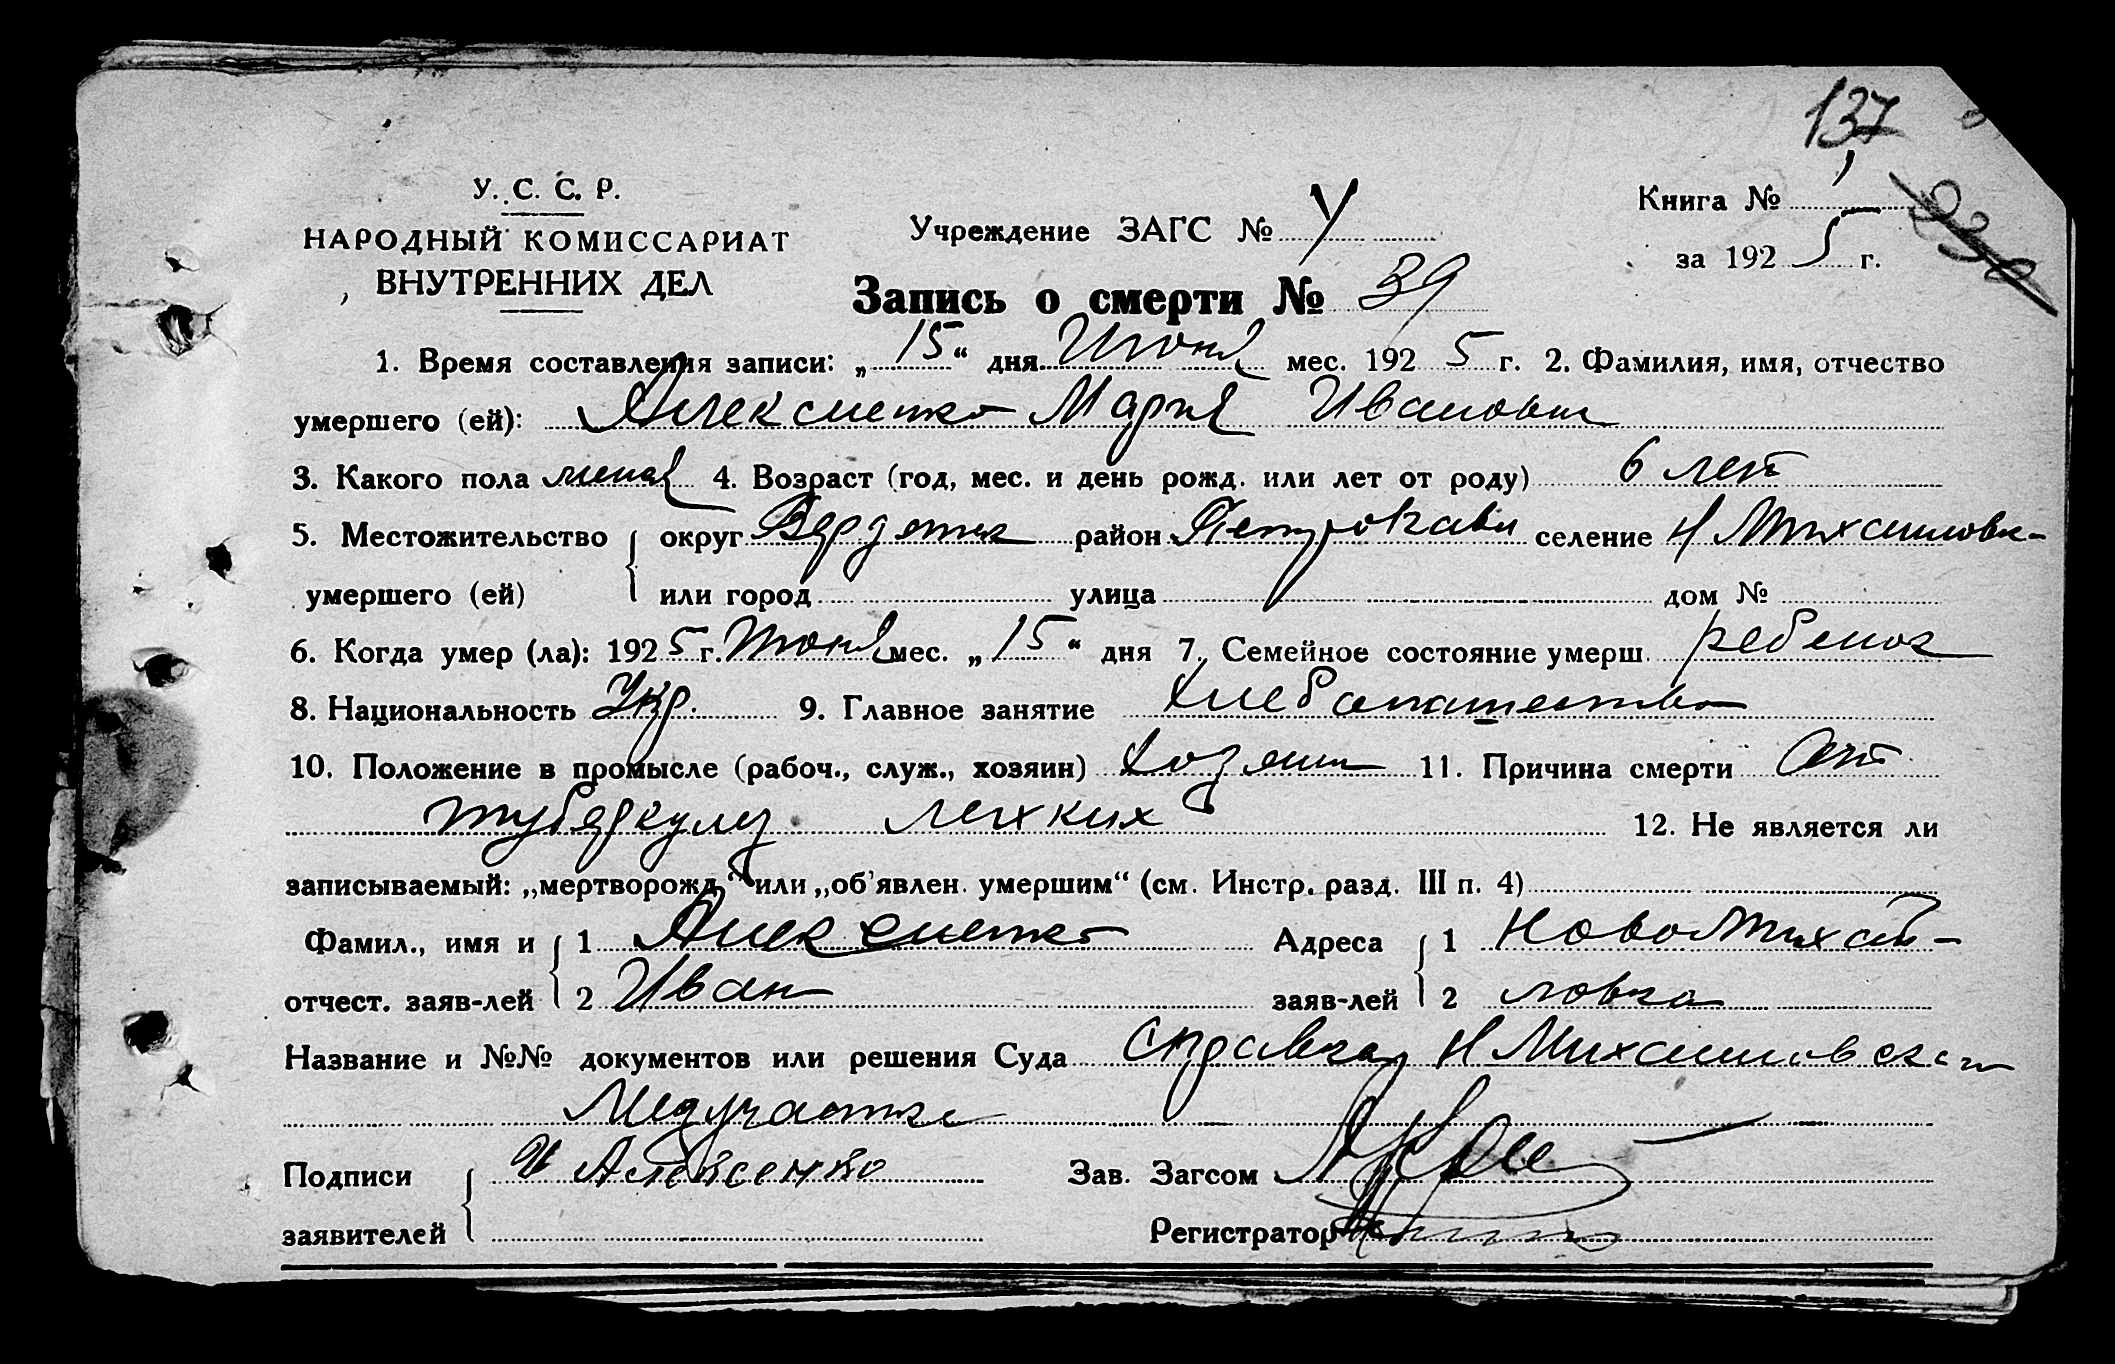 137
У. С. С. Р.
НАРОДНЫЙ КОМИССАРИАТ
ВНУТРЕННИХ ДЕЛ
Учреждение ЗАГС №
Книга № 1
за 1925 г.
Запись о смерти № 39
1. Время составления записи: „15“ дня Июня мес. 1925 г. 2. Фамилия, имя, отчество
умершего (ей): Алексенко Мария Ивановна
3. Какого пола женск 4. Возраст (год, мес. и день рожд. или лет от роду) 6 лет
5. Местожительство округ Бердянск район селение Н Михайловк-
умершего (ей) или город улица дом №
6. Когда умер (ла): 1925 г. Июня мес. „15“ дня 7. Семейное состояние умерш. ребенок
8. Национальность Укр. 9. Главное занятие хлебопашество
10. Положение в промысле (рабоч., служ., хозяин) хозяин 11. Причина смерти От
туберкулез легких 12. Не является ли
записываемый: „мертворожд.“ или „об'явлен. умершим“ (см. Инстр. разд. III п. 4)
Фамил., имя и 1 Алексенко Адреса 1 Новомихай-
отчест. заяв-лей 2 Иван заяв-лей 2 ловка
Название и №№ документов или решения Суда Справка Н Михайловской
Медучастка
Подписи И Алексенко Зав. Загсом
заявителей Регистратор